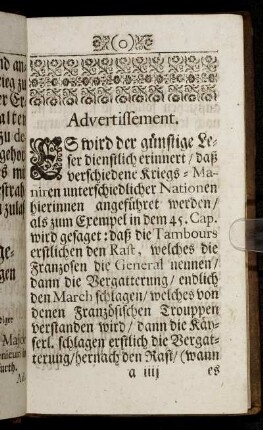 (o)
Advertissement.
ES wird der günstige Le-
ser dienstlich erinnert / daß
verschiedene Kriegs-Ma-
niren unterschiedlicher Nationen
hierinnen angeführet werden /
als zum Exempel in dem 45. Cap.
wird gesaget: daß die Tambours
erstlichen den Rast, welches die
Franzosen die General nennen /
dann die Vergatterung / endlich
den March schlagen / welches von
denen Französischen Trouppen
verstanden wird / dann die Käy-
serl. schlagen erstlich die Vergat-
terung / hernach den Rast / (wann
a iiij es